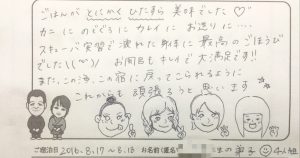 ごはんが とにかく ひたすら 美味でした♡
カニにのどぐろに カレイに お造りに…。
スキューバ実習で疲れた身体に 最高のごほうび
でした\(^^)/ お風呂も キレイで 大満足です!!
また、この海、この宿に戻ってこられるように
これからも 頑張ろうと 思います
ご宿泊日 2016.8.17～8.18 お名前(匿名 生の弟子 4人組